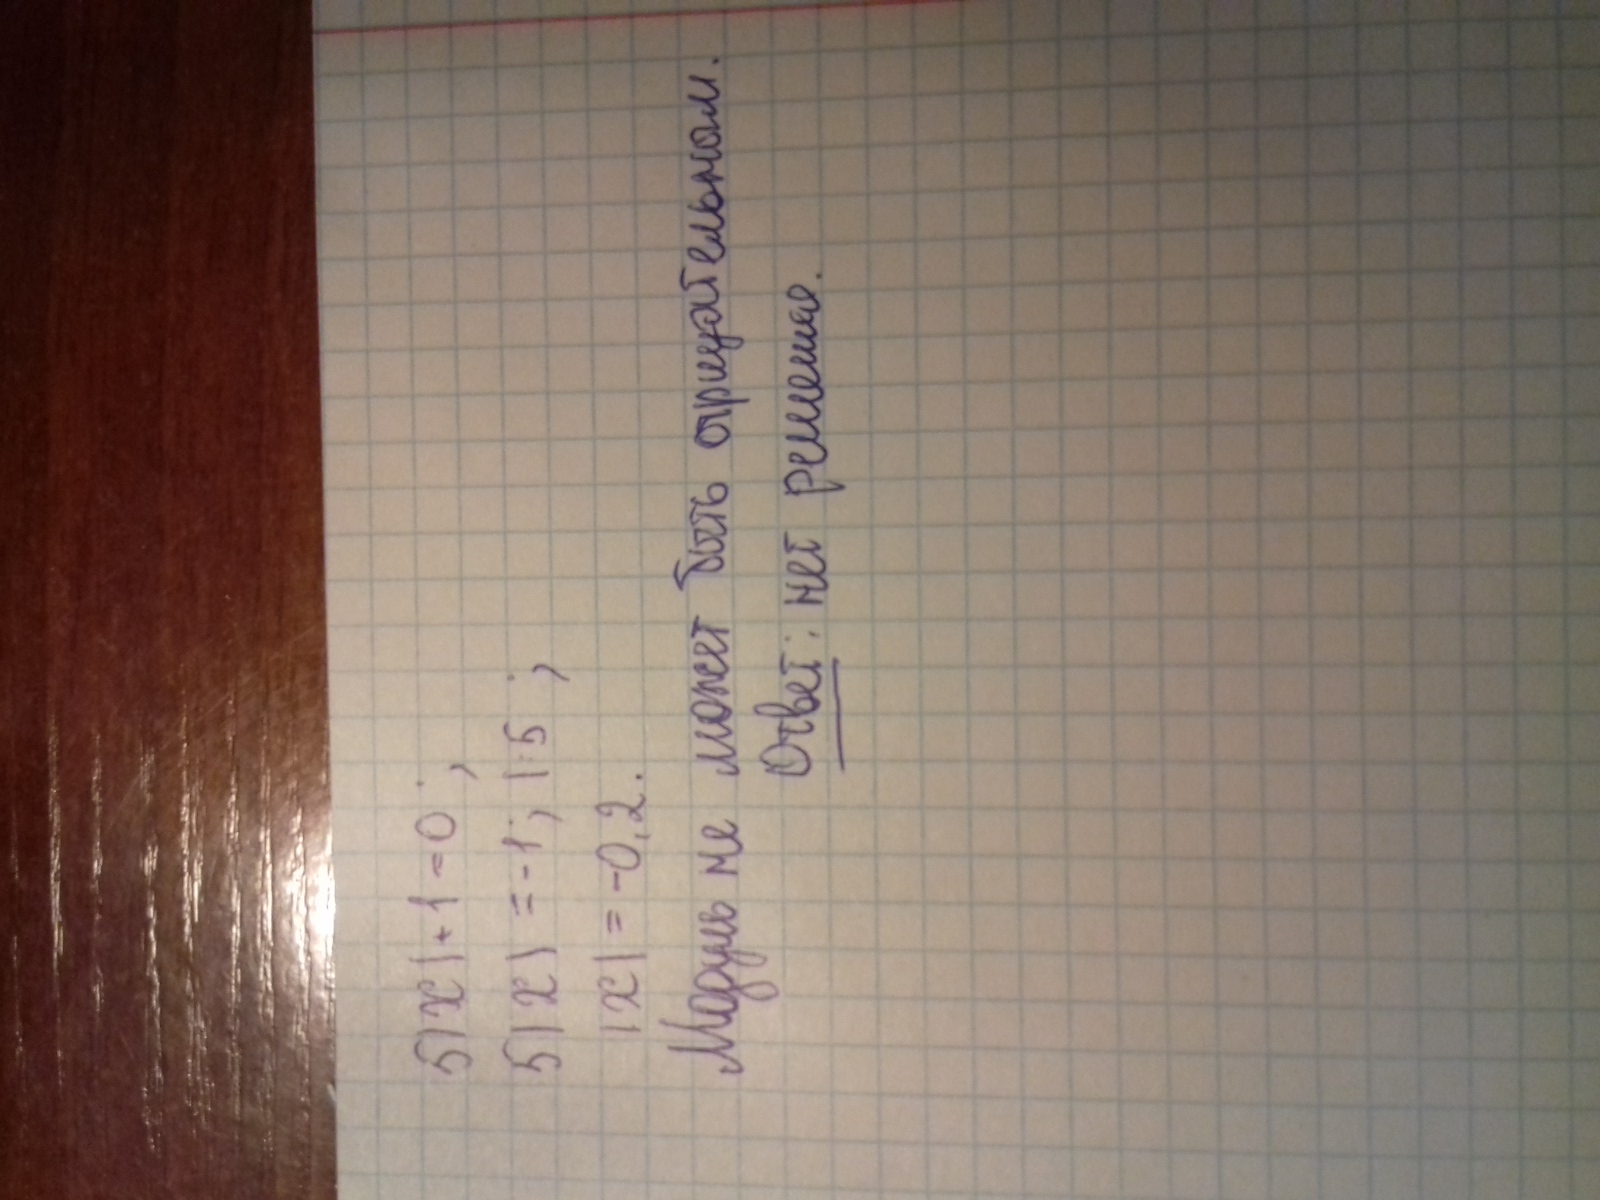 5|x|+1=0;
5|x|=-1; |:5;
|x|=-0,2.
Модуль не может быть отрицательном.
Ответ: нет решения.